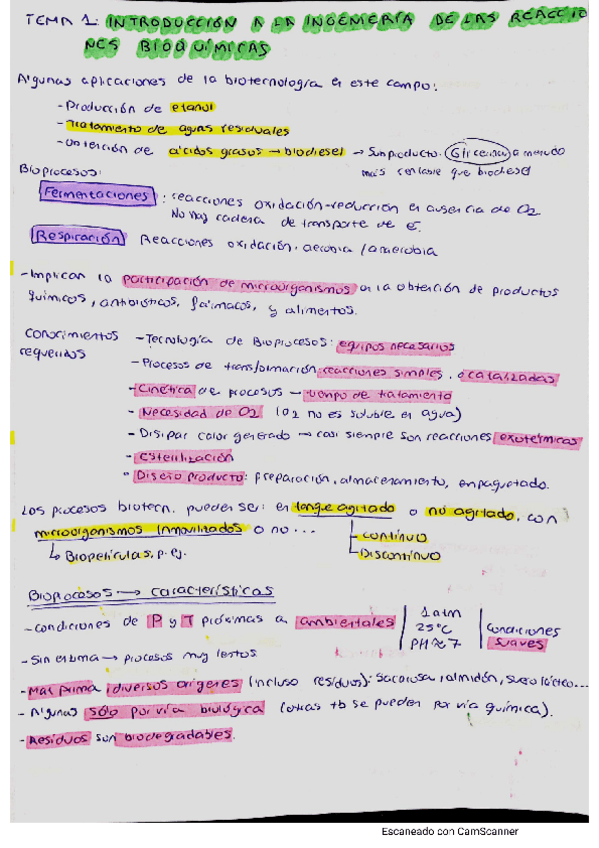 TEMA 1: INTRODUCCIÓN A LA INGENIERÍA DE LAS REACCIO
NES BIOQUÍMICAS
Algunas aplicaciones de la biotecnología en este campo:
- Producción de etanol
- Tratamiento de aguas residuales
- Obtención de ácidos grasos → biodiesel → Subproducto: Glicerina, a menudo
más rentable que biodiesel
Bioprocesos:
Fermentaciones : reacciones oxidación-reducción en ausencia de O2
No hay cadena de transporte de e-.
Respiración Reacciones oxidación. aerobia / anaerobia
- Implican la participación de microorganismos en la obtención de productos
químicos, antibióticos, fármacos, y alimentos.
Conocimientos - Tecnología de Bioprocesos: equipos necesarios
requeridos - Procesos de transformación: reacciones simples o catalizadas
- Cinética de procesos → tiempo de tratamiento
- Necesidad de O2 (O2 no es soluble en agua)
- Disipar calor generado → casi siempre son reacciones exotérmicas
- Esterilización
- Diseño producto: preparación, almacenamiento, empaquetado.
Los procesos biotecn. pueden ser: en tanque agitado o no agitado, con
microorganismos inmovilizados o no... - continuo
↳ Biopelículas, p. ej. - Discontinuo
Bioprocesos → características
- condiciones de P y T próximas a ambientales | 1 atm | condiciones
25°C suaves
PH≈7
- Sin enzima → procesos muy lentos
- Mat prima: diversos orígenes (incluso residuos): sacarosa, almidón, suero lácteo...
- Algunas sólo por vía biológica (otras tb se pueden por vía química).
- Residuos son biodegradables.
Escaneado con CamScanner